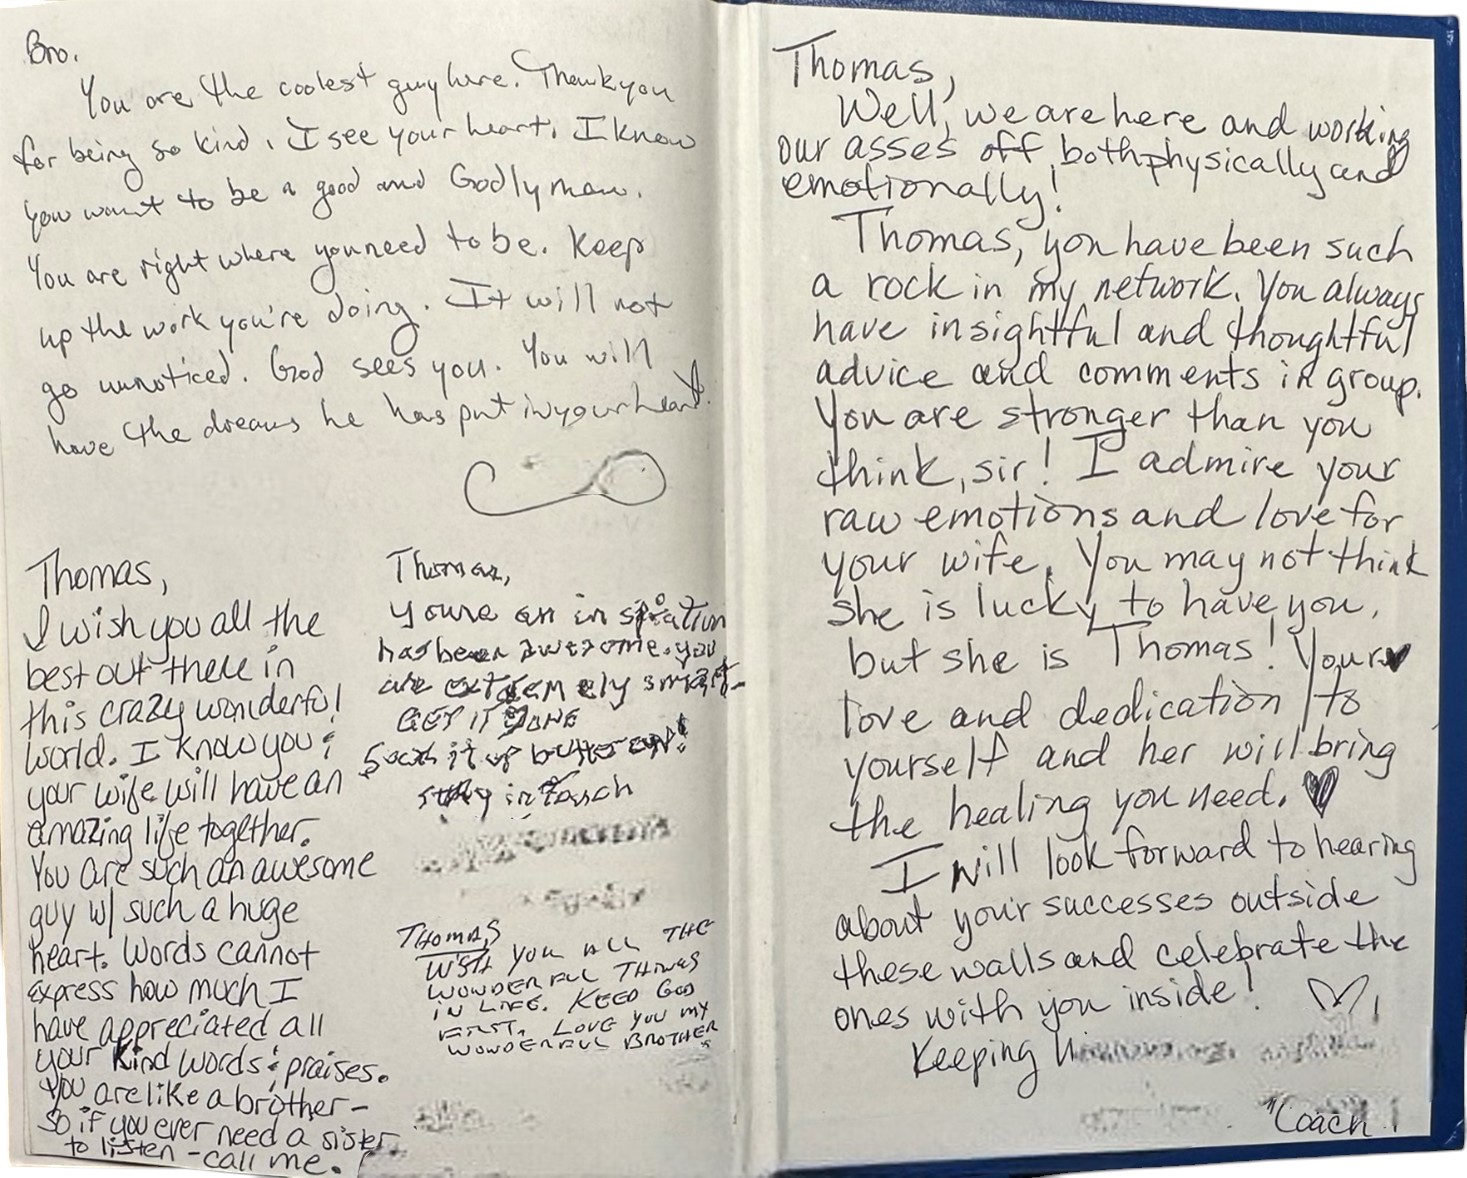 Bro.
You are the coolest guy here. Thank you
for being so kind. I see your heart. I know
you want to be a good and Godly man.
You are right where you need to be. Keep
up the work you're doing. It will not
go unnoticed. God sees you. You will
have the dreams he has put in your heart.
Thomas,
I wish you all the
best out there in
this crazy wonderful
world. I know you &
your wife will have an
amazing life together.
You are such an awesome
guy w/ such a huge
heart. Words cannot
express how much I
have appreciated all
your kind words & praises.
You are like a brother-
so if you ever need a sister
to listen - call me.
Thomas,
youre an in spiration
has been awesome. you
are extremely smart-
GET IT DONE
Suck it up buttercup!
stay in touch
THOMAS
WISH YOU ALL THE
WONDERFUL THINGS
IN LIFE. KEEP GOD
FIRST. LOVE YOU MY
WONDERFUL BROTHER
Thomas,
Well, we are here and working
our asses off both physically and
emotionally!
Thomas, you have been such
a rock in my network. You always
have insightful and thoughtful
advice and comments in group.
You are stronger than you
think, sir! I admire your
raw emotions and love for
your wife. You may not think
she is lucky to have you,
but she is Thomas! Your
love and dedication to
yourself and her will bring
the healing you need.
I will look forward to hearing
about your successes outside
these walls and celebrate the
ones with you inside!
Keeping
"Coach